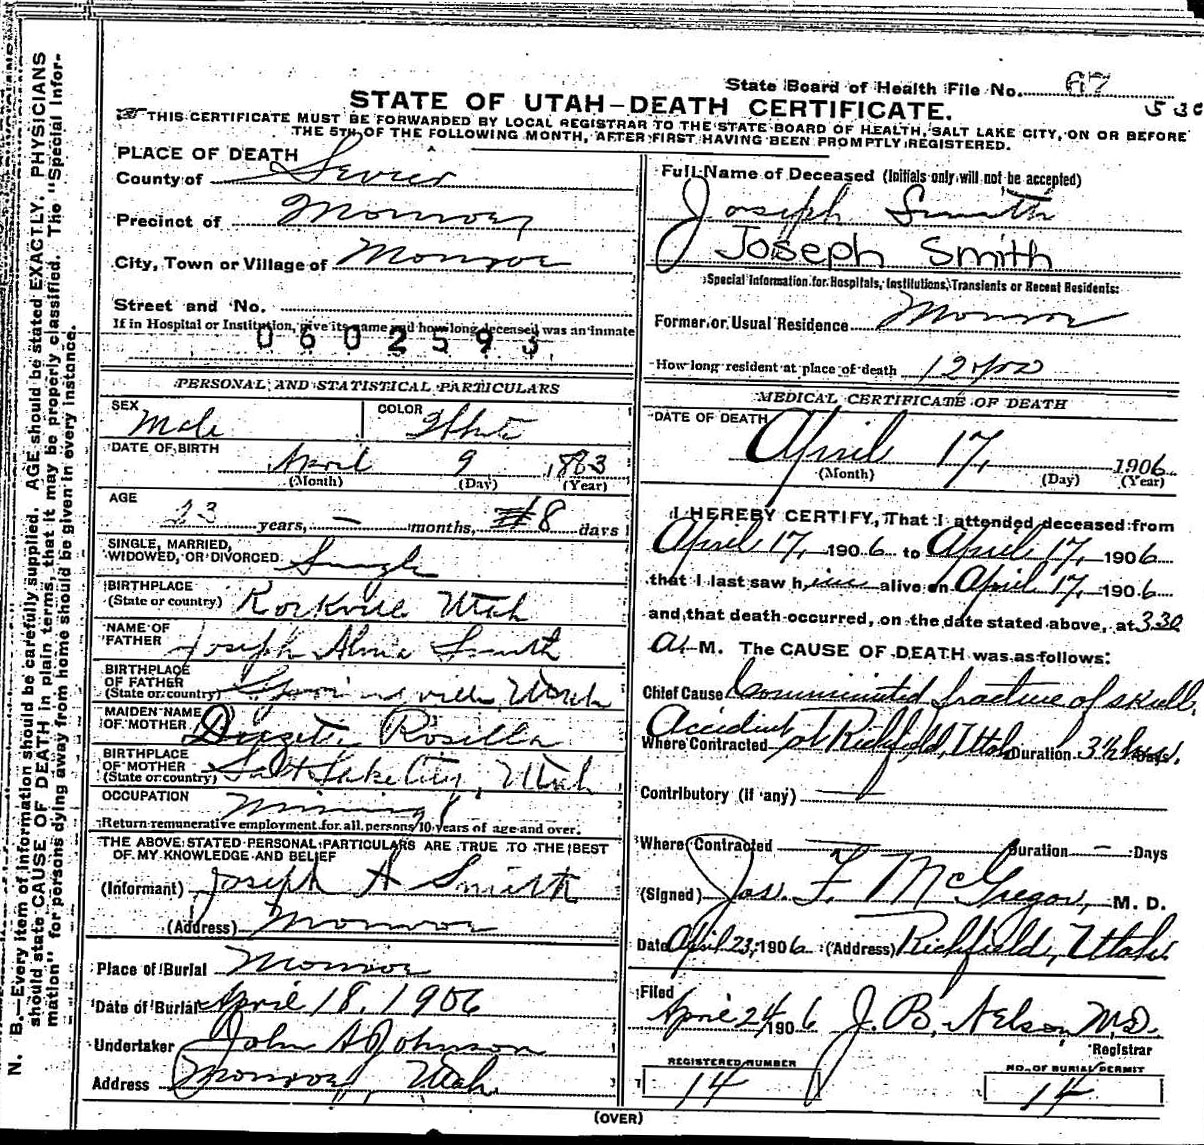 State Board of Health File No. 67
530
STATE OF UTAH—DEATH CERTIFICATE.
THIS CERTIFICATE MUST BE FORWARDED BY LOCAL REGISTRAR TO THE STATE BOARD OF HEALTH, SALT LAKE CITY, ON OR BEFORE
THE 5TH OF THE FOLLOWING MONTH, AFTER FIRST HAVING BEEN PROMPTLY REGISTERED.
PLACE OF DEATH
County of Sevier
Precinct of Monroe
City, Town or Village of Monroe
Street and No.
If in Hospital or Institution, give its name and how long deceased was an inmate
0602593
PERSONAL AND STATISTICAL PARTICULARS
SEX Male
COLOR White
DATE OF BIRTH April 9 1883
(Month) (Day) (Year)
AGE 23 years, — months, 8 days
SINGLE, MARRIED,
WIDOWED, OR DIVORCED Single
BIRTHPLACE
(State or country) Rockville Utah
NAME OF
FATHER Joseph Alma Smith
BIRTHPLACE
OF FATHER
(State or country) Utah
MAIDEN NAME
OF MOTHER Rosilla
BIRTHPLACE
OF MOTHER
(State or country) Salt Lake City, Utah
OCCUPATION Mining
Return remunerative employment for all persons 10 years of age and over.
THE ABOVE STATED PERSONAL PARTICULARS ARE TRUE TO THE BEST
OF MY KNOWLEDGE AND BELIEF
(Informant) Joseph A Smith
(Address) Monroe
Place of Burial Monroe
Date of Burial April 18, 1906
Undertaker John A Johnson
Address Monroe Utah
Full Name of Deceased (Initials only will not be accepted)
Joseph Smith
Joseph Smith
Special Information for Hospitals, Institutions, Transients or Recent Residents:
Former or Usual Residence Monroe
How long resident at place of death 12 yrs
MEDICAL CERTIFICATE OF DEATH
DATE OF DEATH
April 17, 1906
(Month) (Day) (Year)
I HEREBY CERTIFY, That I attended deceased from
April 17, 1906 to April 17, 1906
that I last saw him alive on April 17, 1906
and that death occurred, on the date stated above, at 3.30
A. M. The CAUSE OF DEATH was as follows:
Chief Cause Comminuted fracture of skull,
Accident
Where Contracted at Richfield, Utah Duration 3½ hrs.
Contributory (if any)
Where Contracted — Duration — Days
(Signed) Jas. F. McGregor, M. D.
Date April 23, 1906 (Address) Richfield, Utah
Filed
April 24 1906 J. B. Nelson, M.D.
Registrar
REGISTERED NUMBER
14
NO. OF BURIAL PERMIT
14
(OVER)
N. B.—Every item of information should be carefully supplied. AGE should be stated EXACTLY. PHYSICIANS
should state CAUSE OF DEATH in plain terms, that it may be properly classified. The "Special Infor-
mation" for persons dying away from home should be given in every instance.